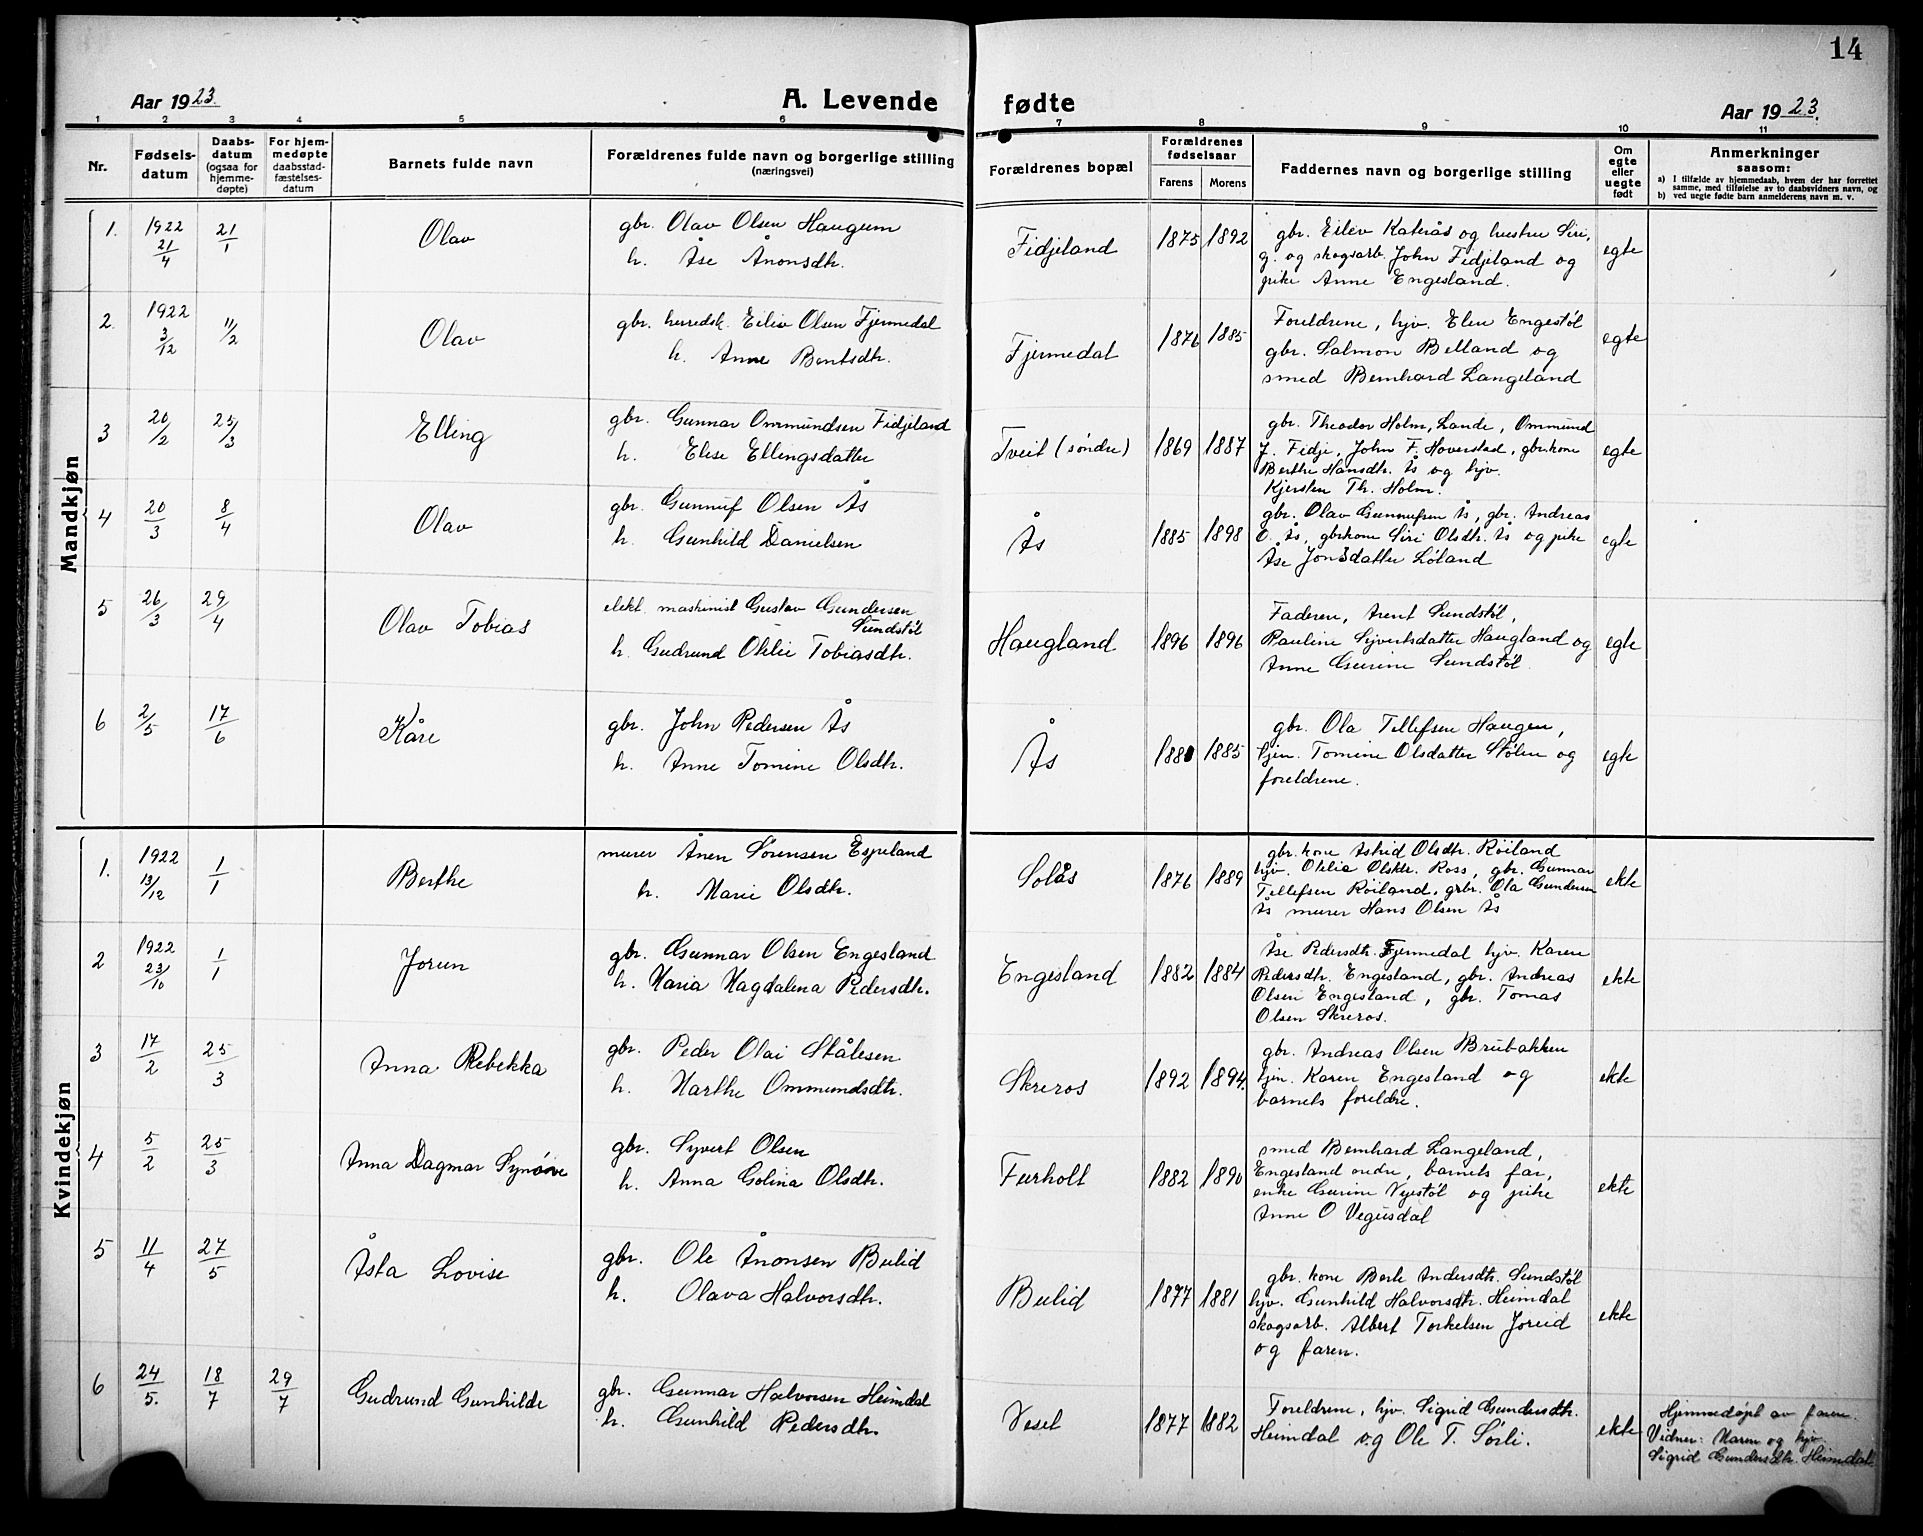 14
Aar 1923.
A. Levende
fødte
Aar 1923.
1 2 3 4 5 6 7 8 9 10 11
Nr.
Fødsels-
datum
Daabs-
datum
(ogsaa for
hjemme-
døpte)
For hjem-
medøpte
daabsstad-
fæstelses-
datum
Barnets fulde navn
Forældrenes fulde navn og borgerlige stilling
(næringsvei)
Forældrenes bopæl
Forældrenes
fødselsaar
Farens Morens
Faddernes navn og borgerlige stilling
Om
egte
eller
uegte
født
Anmerkninger
saasom:
a) I tilfælde av hjemmedaab, hvem der har forrettet
samme, med tilføielse av to daabsvidners navn, og
b) ved uegte fødte barn anmelderens navn m. v.
Mandkjøn
1. 1922 21/4 21/1 Olav
gbr. Olav Olsen Haugum
h. Åse Ånonsdtr.
Fidjeland 1875 1892
gbr. Eilev Katerås og hustru Siri,
g. og skogsarb. John Fidjeland og
pike Anne Engesland.
egte
2. 1922 3/12 11/2 Olav
gbr. herredsk. Eiliv Olsen Fjermedal
h. Anne Bentsdtr.
Fjermedal 1876 1885
Foreldrene, hjv. Elen Engestøl
gbr. Salmon Belland og
smed Bernhard Langeland
egte
3 20/2 25/3 Elling
gbr. Gunnar Ommundsen Fidjeland
h. Elise Ellingsdatter
Tveit (søndre) 1869 1887
gbr. Theodor Holm, Lande, Ommund
J. Fidje, John F. Hoverstad, gbrkone
Berthe Hansdtr. Ås og hjv.
Kjersten Th. Holm.
egte
4 20/3 8/4 Olav
gbr. Gunnuf Olsen Ås
h. Gunhild Danielsen
Ås 1885 1898
gbr. Olav Gunnufsen Ås, gbr. Andreas
O. Ås, gbrkone Siri Olsdtr. Ås og pike
Åse Jonsdatter Løland
egte
5 26/3 29/4 Olav Tobias
elekt. maskinist Gustav Gundersen
Sundstøl
h. Gudrund Otilie Tobiasdtr.
Haugland 1896 1896
Faderen, Arent Sundstøl,
Pauline Sijvertsdatter Haugland og
Anne Gurine Sundstøl.
egte
6 2/5 17/6 Kåre
gbr. John Pedersen Ås
h. Anne Tomine Olsdtr.
Ås 1885
gbr. Ola Tellefsen Haugen,
tjen. Tomine Olsdatter Stølen og
foreldrene.
egte
Kvindekjøn
1. 1922 13/12 1/1 Berthe
murer Ånen Sørensen Espeland
h. Marie Olsdtr.
Solås 1876 1889
gbr. kone Astrid Olsdtr. Röiland
hjv. Otilia Olsdtr. Ross, gbr. Gunnar
Tellefsen Röiland, grbr. Ola Gundersen
Ås murer Hans Olsen Ås
ekte
2 1922 23/10 1/1 Jorun
gbr. Gunnar Olsen Engesland
h. Maria Magdalena Pedersdtr.
Engesland 1882 1884
Åse Pedersdtr. Fjermedal hjv. Karen
Pedersdtr. Engesland, gbr. Andreas
Olsen Engesland, gbr. Tomas
Olsen Skreros.
ekte
3 17/2 25/3 Anna Rebekka
gbr. Peder Olai Stålesen
h. Marthe Ommundsdtr.
Skreros 1892 1894.
gbr. Andreas Olsen Brubakken
tjen. Karen Engesland og
barnets foreldre.
ekte
4 5/2 25/3 Anna Dagmar Synøve
gbr. Syvert Olsen
h. Anna Golina Olsdtr.
Furholt 1882 1890
smed Bernhard Langeland,
Engesland nedre, barnets far,
enke Gurine Vyestøl og pike
Anne O Vegusdal
ekte
5 11/4 27/5 Åsta Lovise
gbr. Ole Ånonsen Bulid
h. Olava Halvorsdtr.
Bulid 1877 1881
gbr. kone Berte Andersdtr. Sundstøl
hjv. Gunhild Halvorsdtr. Heimdal
skogsarb. Albert Torkelsen Joreid
og faren.
ekte
6 24/5. 18/7 29/7 Gudrund Gunhilde
gbr. Gunnar Halvorsen Heimdal
h. Gunhild Pedersdtr.
Vesel 1877 1882
Foreldrene, hjv. Sigrid Gundersdtr.
Heimdal og Ole T. Sørli.
ekte
Hjemmedøpt av faren.
Vidner: Maren og hjv.
Sigrid Gundersdtr. Heimdal